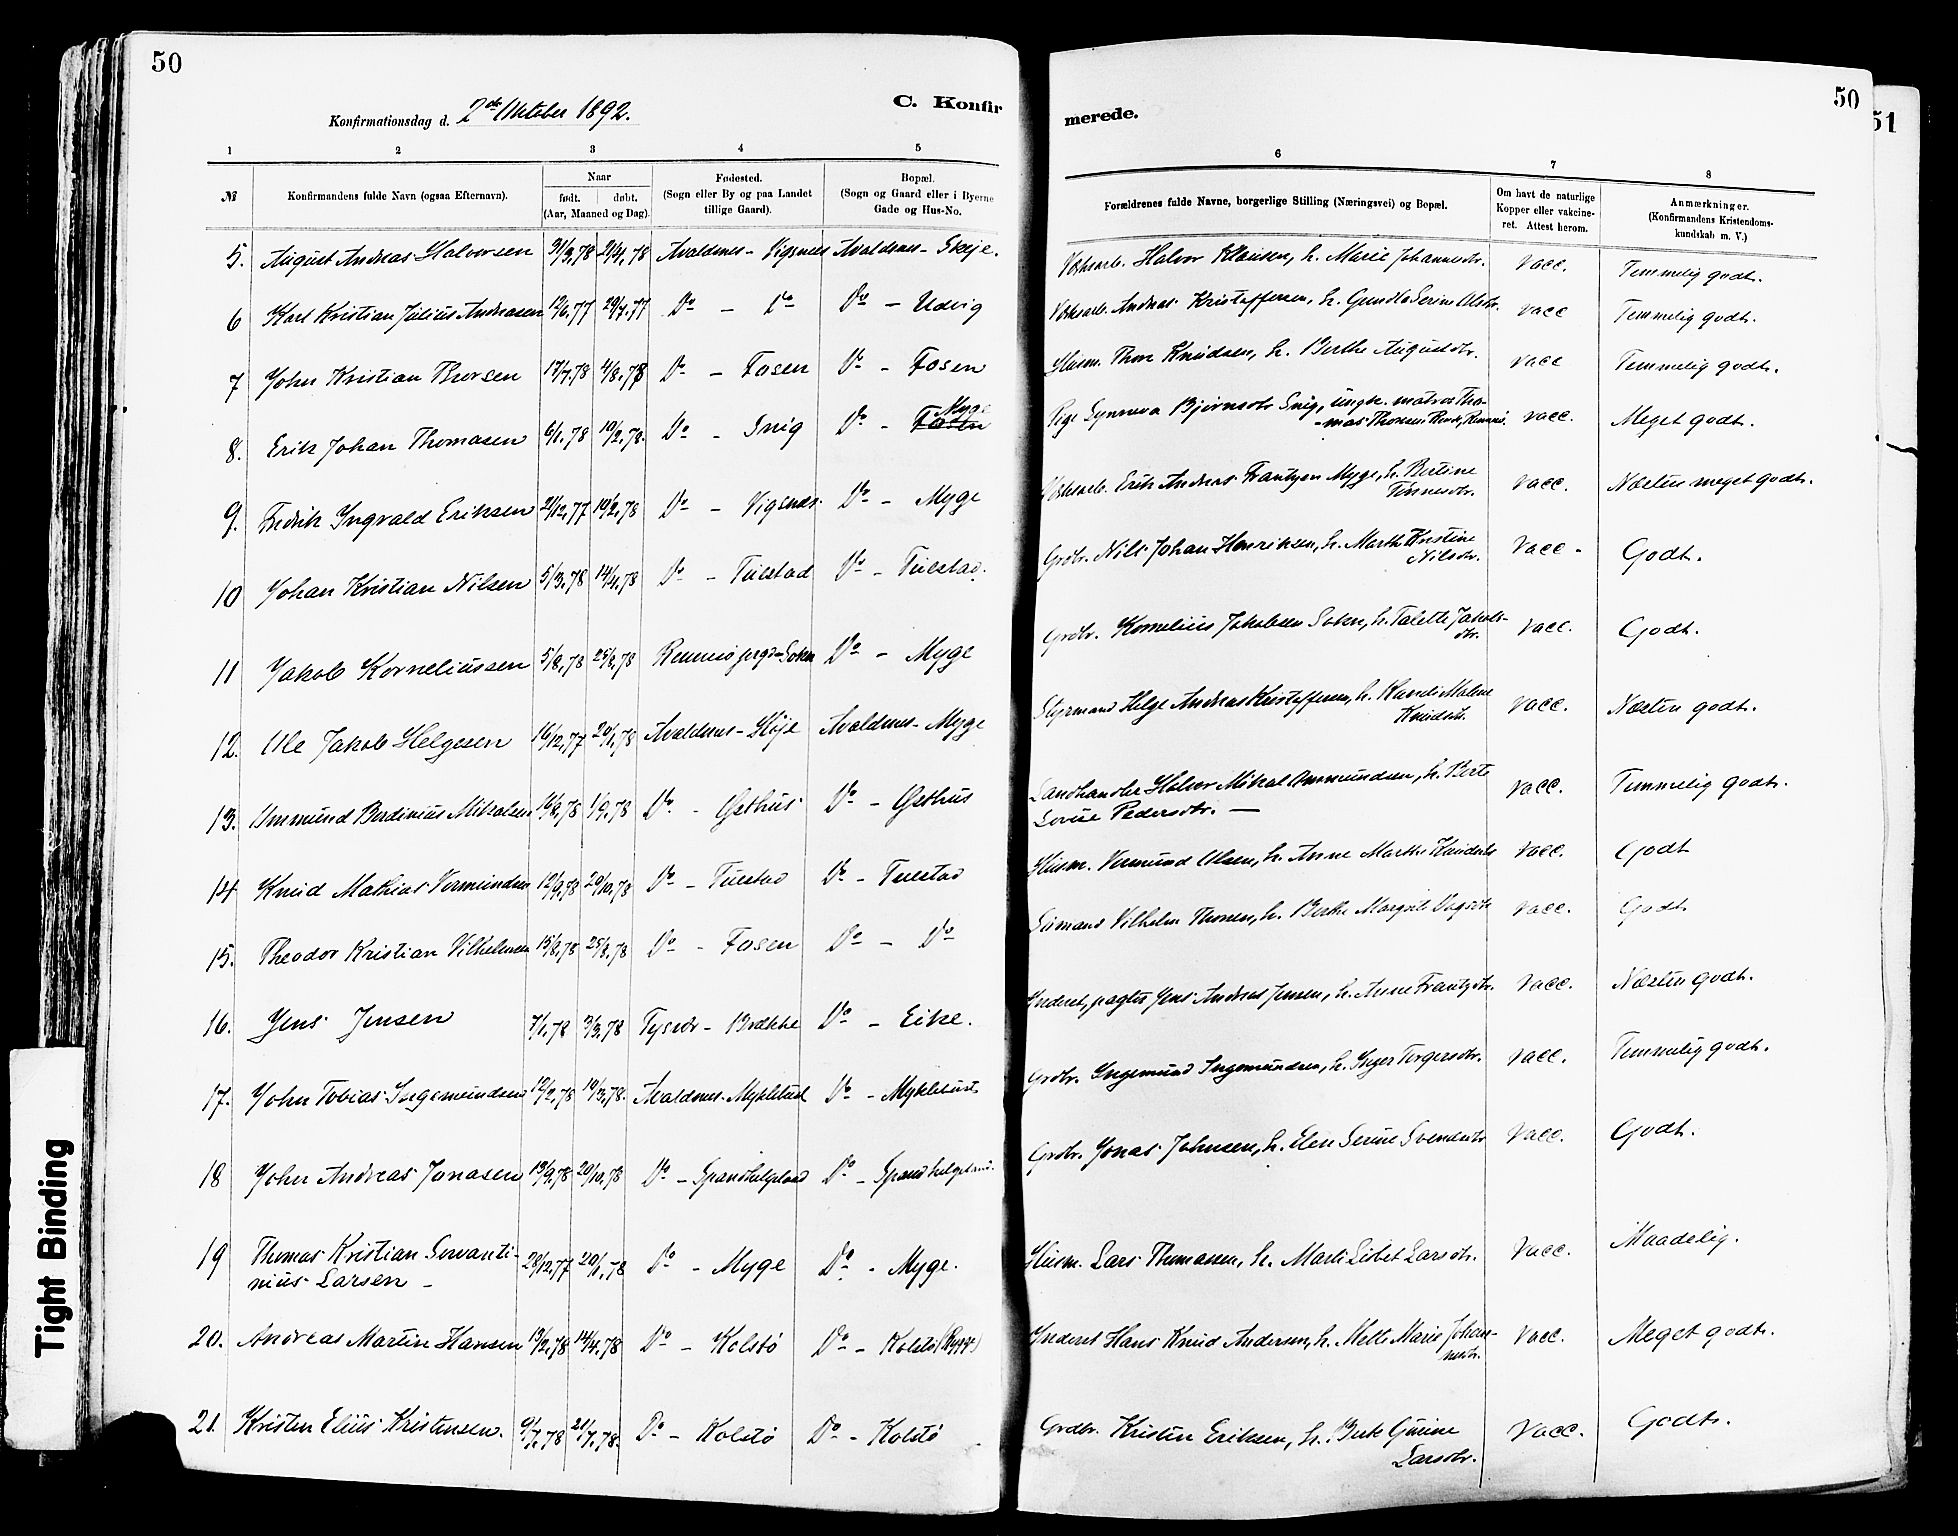 50
Konfirmationsdag d. 2de Oktober 1892.
C. Konfir
merede.
50
51
1 2 3 4 5 6 7 8
№
Konfirmandens fulde Navn (ogsaa Efternavn).
Naar
født. døbt.
(Aar, Maaned og Dag).
Fødested.
(Sogn eller By og paa Landet
tillige Gaard).
Bopæl.
(Sogn og Gaard eller i Byerne
Gade og Hus-No.
Forældrenes fulde Navne, borgerlige Stilling (Næringsvei) og Bopæl.
Om havt de naturlige
Kopper eller vakcine-
ret. Attest herom.
Anmærkninger.
(Konfirmandens Kristendoms-
kundskab m. V.)
5. August Andreas Halvorsen 31/3,78 21/4,78 Avaldsnes - Vigsnes Avaldsnes - Skeje. Halvor Klausen, h. Marie Johannesdtr. Vacc. Temmelig godt.
6 Karl Kristian Julius Andreasen 12/6,77 29/7,77 Do - Do Do - Udvig Andreas Kristoffersen, h. Gundla Serine Olsdtr. vacc Temmelig godt.
7 John Kristian Thorsen 17/7,78 4/8,78 Do - Fosen Do - Fosen Husm. Thore Knudsen, h. Berthe Augustdtr. vacc Temmelig godt.
8. Erik Johan Thomasen 6/1,78 10/2,78. Do - Snig Do - Fosen Myge Pige Synneva Bjørnsdtr Snig, ungk. matros Tho-
-mas Thorsen vacc. Meget godt.
9. Fredrik Ingvald Eriksen 21/12,77 10/2,78 Do - Vigsnes Do - Myge Erik Andreas Frantzen Myge, h. Bertine
Tønnesdtr. vacc. Næsten meget godt.
10 Johan Kristian Nilsen 5/3,78 14/4,78 Do - Tuestad Do - Tuestad. Grdbr. Nils Johan Henriksen, h. Marthe Kristine
Nilsdtr. Vacc - Godt.
11 Jakob Korneliussen 5/8,78 25/8,78 Rennesø prgd - Soken Do - Myge Grdbr. Kornelius Jakobsen Soken, h. Talette Jakobs-
dtr. vacc. Godt.
12. Ole Jakob Helgesen 16/12,77 20/1,78 Avaldsnes - Høje Avaldsnes - Myge Styrmand Helge Andreas Kristoffersen, h. Malene
Knudsdt. vacc. Næsten godt.
13. Ommund Berdinius Mikalsen 16/8,78 1/9,78 Do - Gethus Do - Gethus Landhandler Halvor Mikal Ommundsen, h. Berte
Lovise Pedersdtr. - vacc. Temmelig godt.
14 Knud Mathias Vermundsen 12/9,78 20/10,78 Do - Tuestad Do - Tuestad Husm. Vermund Olsen, h. Anne Marthe Knudsdt vacc. Godt
15. Theodor Kristian Vilhelmsen 15/8,78 25/8,78 Do - Fosen Do - Do Sømand Vilhelm Thorsen, h. Berthe vacc. Godt
16. Jens Jensen 7/1,78 3/3,78 Tysvær - Brække Do - Eike. Inderst, pagter Jens Andreas Jensen, h. Anne Frantzdtr. vacc. Næsten godt.
17. John Tobias Ingemundsen 12/2,78 10/3,78. Avaldsnes - Myklebust Do - Myklebust Grdbr. Ingemund Ingemundsen, h. Inger Torgersdtr. vacc. Temmelig godt.
18 John Andreas Jonasen 19/9,78 20/10,78 Do - Spandhelgeland Do - Spandhelgeland. Grdbr. Jonas Johnsen, h. Elen Serine Svendsdtr vacc. Godt.
19 Thomas Kristian Servanti-
nius Larsen - 28/12,77 20/1,78 Do - Myge Do - Myge. Husm. Lars Thomassen, h. Marte Lisbet Larsdtr. Vacc. Maadelig.
20. Andreas Martin Hansen 13/2,78 14/4,78 Do - Kolstø Do - Kolstø (Rygge) Inderst Hans Knud Andersen, h. Mette Marie Johan-
nesdtr. Vacc. Meget godt.
21. Kristen Elius Kristensen. 9/7,78 21/7,78. Do - Kolstø Do - Kolstø Grdbr. Kristen Eriksen, h. Berte Gurine
Larsdtr. Vacc. Godt.
Tight Binding